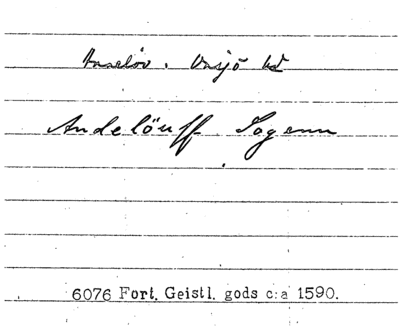 Anslöv. Onsjö hd
Andelöuff Sogenn
6076 Fort. Geistl. gods c:a 1590.